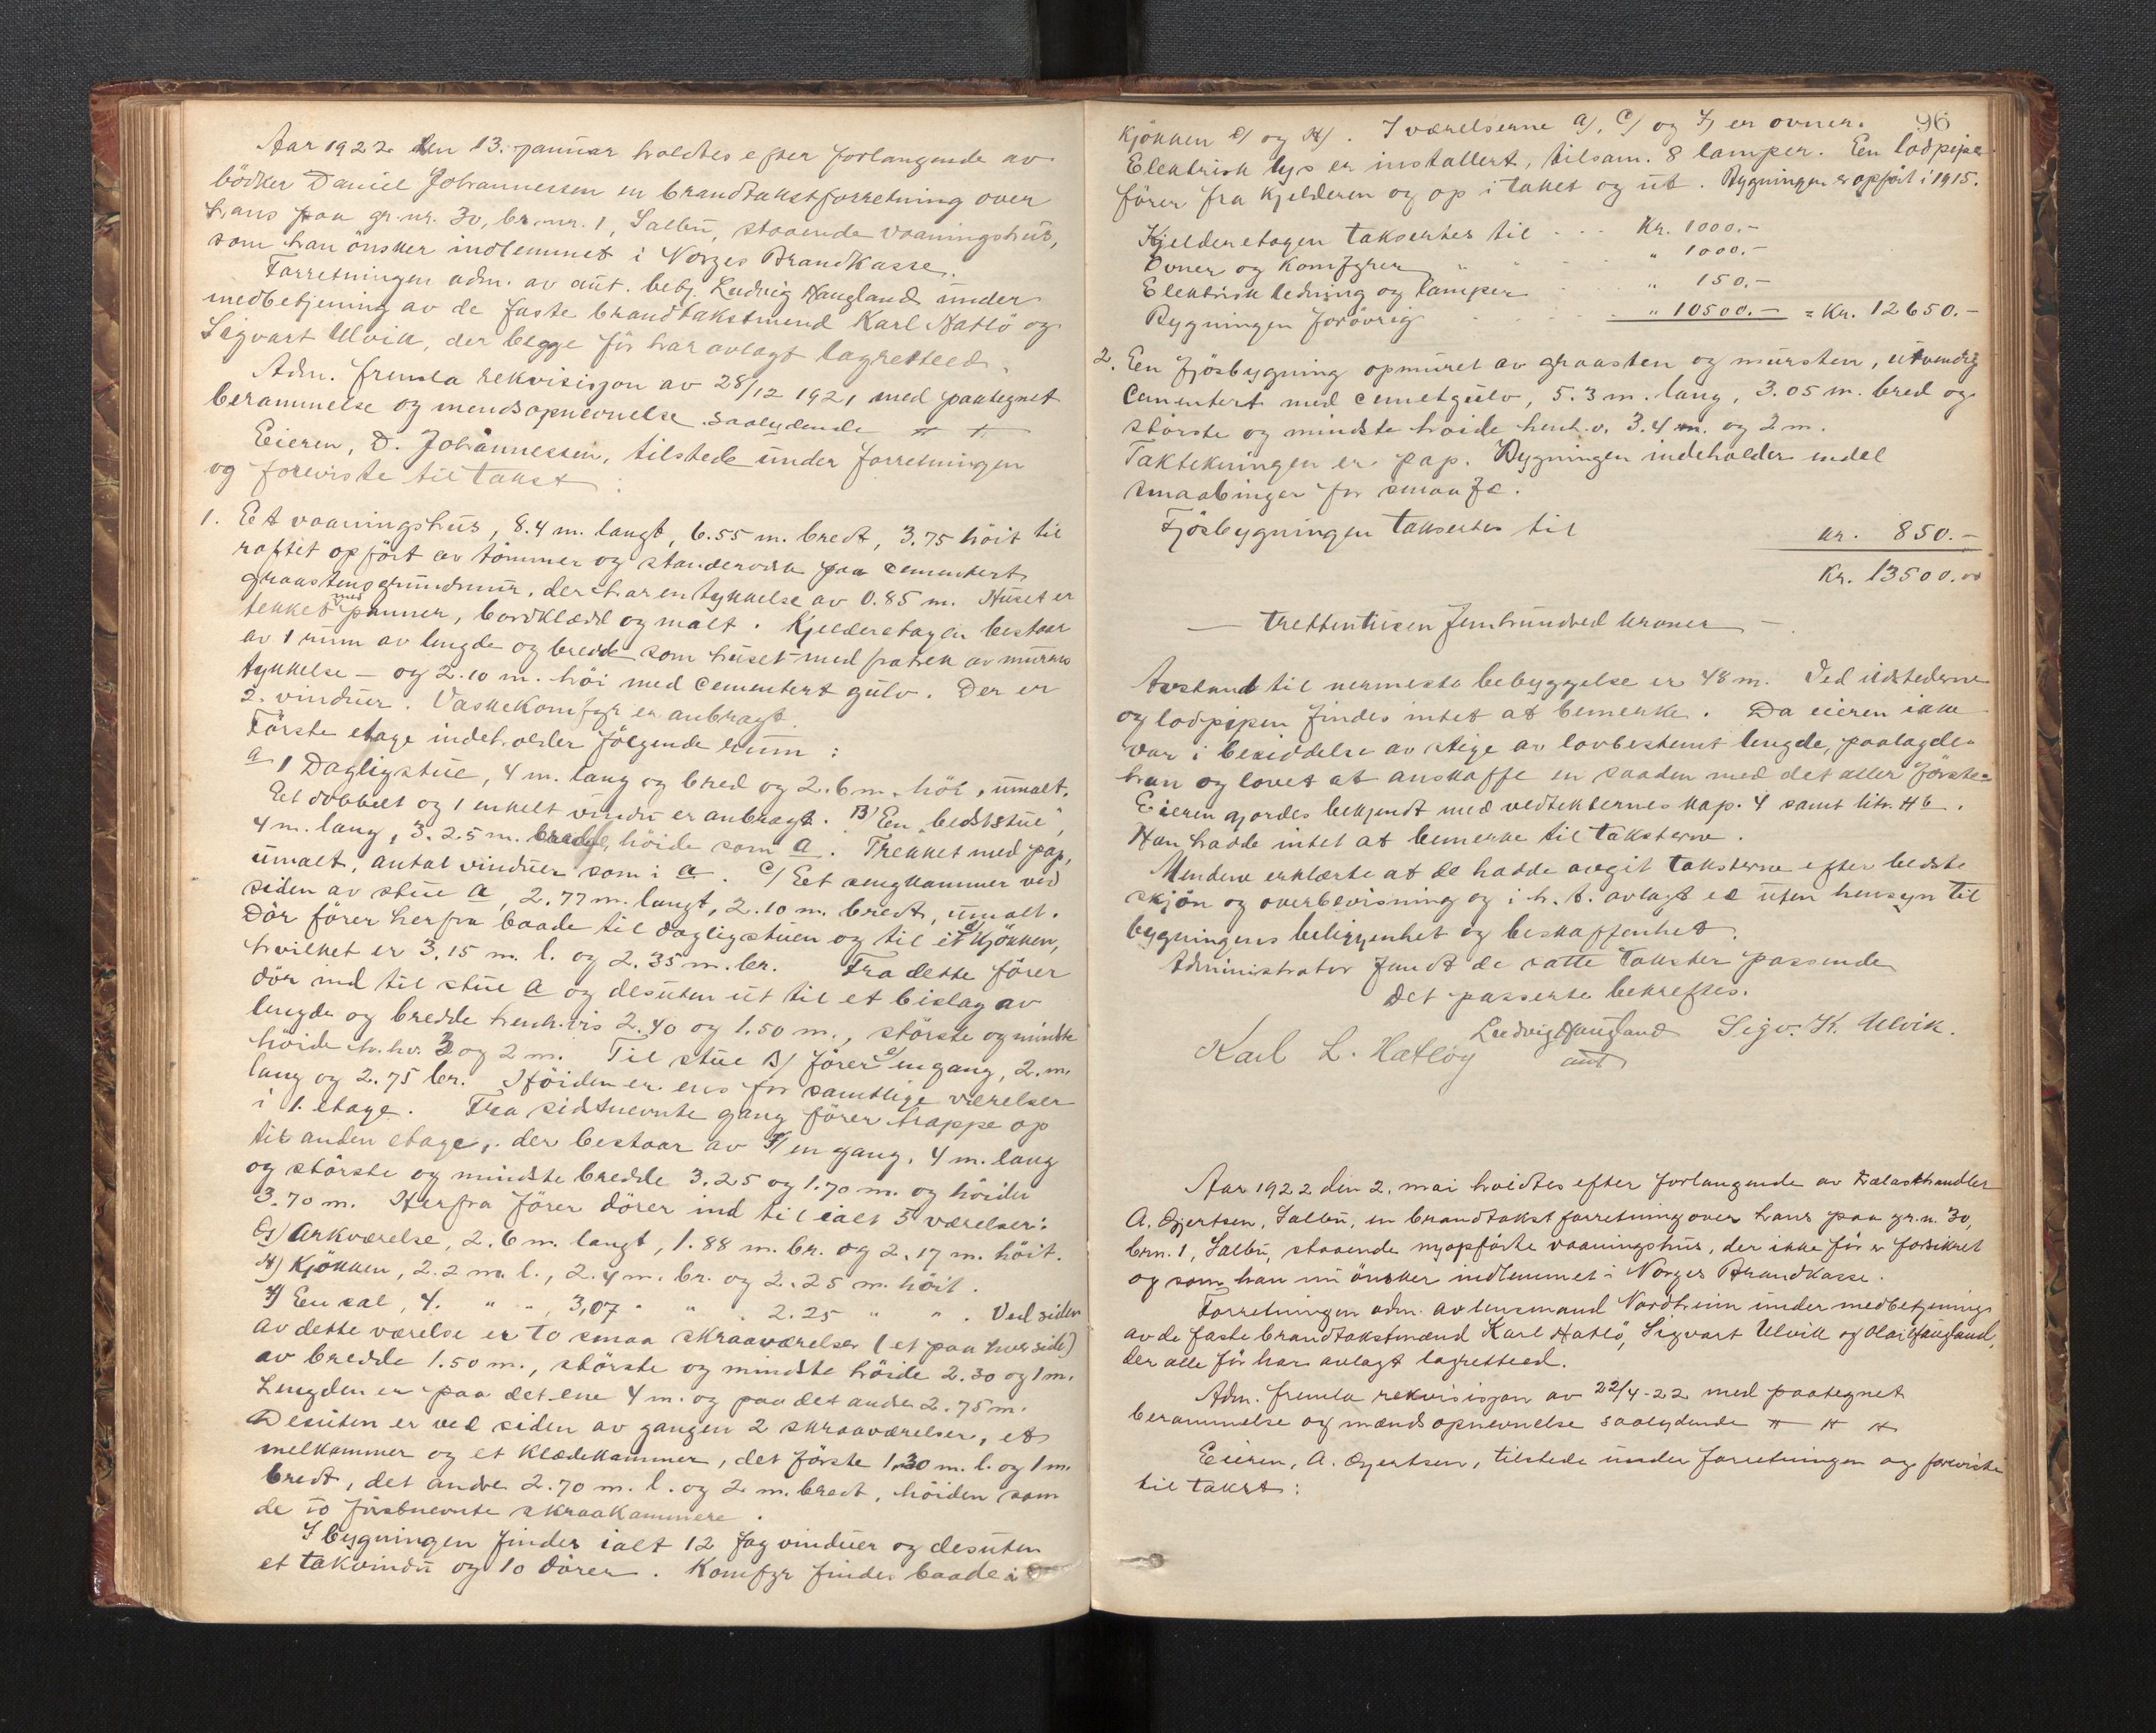 Aar 1922 den 13. januar holdtes efter forlangende av
bödker Daniel Johannessen en brandtakstforretning over
hans paa gr.nr. 30, br.nr. 1, Salbu, staaende vaaningshus,
som han önsker indlemmet i Norges Brandkasse.
Forretningen adm. av aut. betj. Ludvig Haugland under
medbetjening av de faste brandtakstmend Karl Hatlö og
Sigvart Ulvik, der begge för har avlagt lagretteed.
Adm. fremla rekvisisjon av 28/12 1921 med paategnet
berammelse og mendsopnevnelse saalydende
Eieren, D. Johannessen, tilstede under forretningen
og foreviste til takst:
1. Et vaaningshus, 8.4 m. langt, 6.55 m. bredt, 3.75 höit til
raftet opfört av tömmer og standerverk paa cementert
graastensgrundmur, der har en tykkelse av 0.85 m. Huset er
tekket med panner, bordklædd og malt. Kjelderetagen bestaar
av 1 rum av lengde og bredde som huset med fratrek av murens
tykkelse - og 2.10 m. höi med cementert gulv. Der er
2. vinduer. Vaskekomfyr er anbragt.
Förste etage indeholder fölgende rum:
a) Dagligstue, 4 m. lang og bred og 2.6 m. höi, umalt.
Et dobbelt og 1 enkelt vindu er anbragt. B) En "bedststue",
4 m. lang, 3.25 m. bred, höide som a. Trekket med pap,
umalt, antal vinduer som i a. C) Et sengkammer ved
siden av stue a, 2.77 m. langt, 2.10 m. bredt, umalt.
Dör förer herfra baade til dagligstuen og til et d) kjökken,
hvilket er 3.15 m. l. og 2.35 m. br. Fra dette förer
dör ind til stue a og desuten ut til et bislag av
lengde og bredde henh.vis 2.40 og 1.50 m., störste og mindste
höide h.hv. 3 og 2 m. Til stue B) förer e) en gang, 2. m.
lang og 2.75 br. Höiden er ens for samtlige værelser
i 1. etage. Fra sidstnevnte gang förer trappe op
til anden etage, der bestaar av F) en gang, 4 m. lang
og störste og mindste bredde 3.25 og 1.70 m. og höide
3.70 m. Herfra förer dörer ind til ialt 5 værelser:
G) Arkværelse, 2.6 m. langt, 1.88 m. br. og 2.17 m. höit.
H) Kjökken, 2.2 m. l., 2.4 m. br. og 2.25 m. höit.
En sal, 4. " " , 3,07 " " . 2.25 " " . Ved siden
av dette værelse er to smaa skraaværelser (et paa hver side)
av bredde 1.50 m., störste og mindste höide 2.30 og 1 m.
Lengden er paa det ene 4 m. og paa det andre 2.75 m.
Desuten er ved siden av gangen 2 skraaværelser, et
melkammer og et klædekammer, det förste 1.30 m. l. og 1 m.
bredt, det andre 2.70 m. l. og 2 m. bredt, höiden som
de to förstnevnte skraakammere.
I bygningen findes ialt 12 fag vinduer og desuten
et takvindu og 10 dörer. Komfyr findes baade i
96
kjökken d) og H). I værelserne a), C) og F) er ovner.
Elektrisk lys er installert, tilsam. 8 lamper. En lodpipe
förer fra kjelderen og op i taket og ut. Bygningen er opfört i 1915.
Kjelderetagen takseres til . . . Kr. 1000.-
Ovner og komfyrer " 1000.-
Elektrisk ledning og lamper " 150.-
Bygningen forövrig " 10500.- = Kr. 12650.-
2. En fjösbygning opmuret av graasten og mursten, utvendig
cementert med cementgulv, 5.3 m. lang, 3.05 m. bred og
störste og mindste höide henh.v. 3.4 m. og 2 m.
Taktekningen er pap. Bygningen indeholder endel
smaabinger for smaafe.
Fjösbygningen takseres til kr. 850.-
Kr. 13500.00
- trettentusen femhundred kroner -
Avstand til nermeste bebyggelse er 48 m. Ved ildstederne
og lodpipen findes intet at bemerke. Da eieren ikke
var i besiddelse av stige av lovbestemt lengde, paalagdes
han og lovet at anskaffe en saadan med det aller förste.
Eieren gjordes bekjendt med vedtekternes kap. 4 samt litr. H 6.
Han hadde intet at bemerke til taksterne.
Mendene erklærte at de hadde avgit taksterne efter bedste
skjön og overbevisning og i h. t. avlagt ed uten hensyn til
bygningens beliggenhet og beskaffenhet.
Administrator fandt de satte takster passende
Det passerte bekreftes.
Ludvig Haugland Sigv. K. Ulvik.
Karl L. Hatlöy aut
Aar 1922 den 2. mai holdtes efter forlangende av trælasthandler
A. Gjertsen, Salbu, en brandtakstforretning over hans paa gr.n. 30,
brn. 1, Salbu, staaende nyopförte vaaningshus, der ikke för er forsikret
og som han nu önsker indlemmet i Norges Brandkasse.
Forretningen adm. av lensmand Nordheim under medbetjening
av de faste brandtakstmænd Karl Hatlö, Sigvart Ulvik og Olai Haugland,
der alle för har avlagt lagretteed.
Adm. fremla rekvisisjon av 22/4-22 med paategnet
berammelse og mændsopnevnelse saalydende
Eieren, A. Gjertsen, tilstede under forretningen og foreviste
til takst: